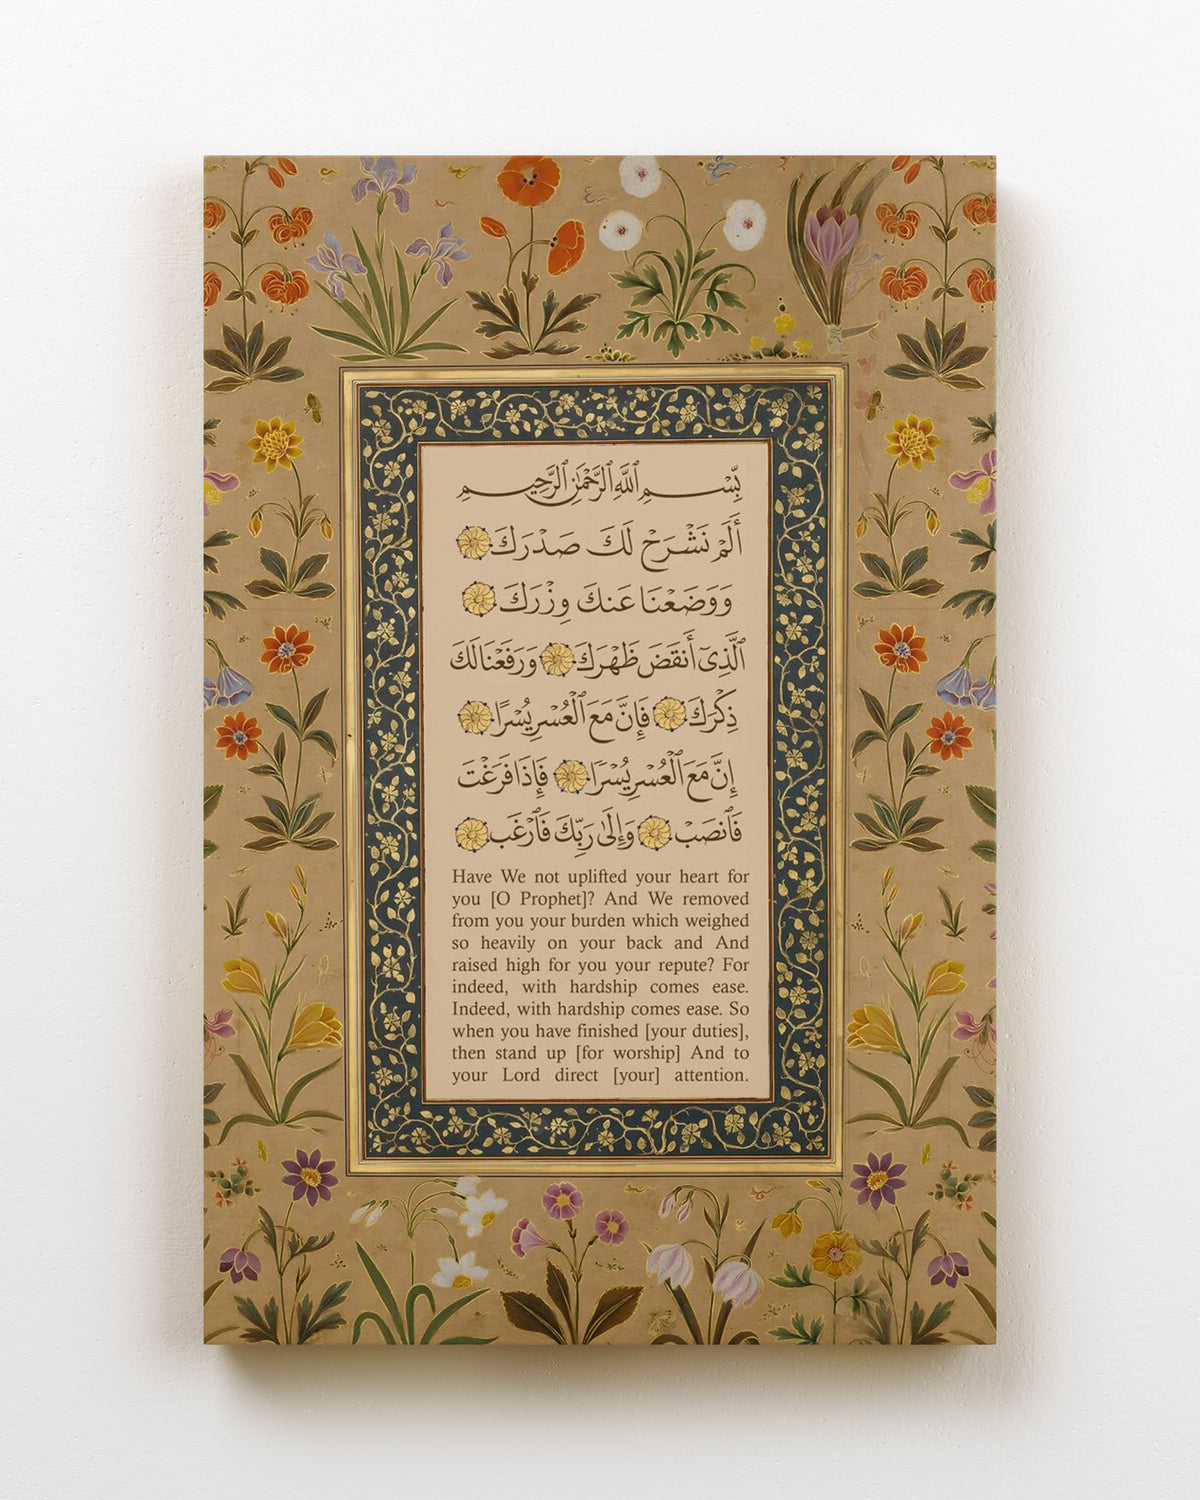 بِسْمِ ٱللَّهِ ٱلرَّحْمَٰنِ ٱلرَّحِيمِ
أَلَمْ نَشْرَحْ لَكَ صَدْرَكَ
وَوَضَعْنَا عَنكَ وِزْرَكَ
ٱلَّذِىٓ أَنقَضَ ظَهْرَكَ وَرَفَعْنَا لَكَ
ذِكْرَكَ فَإِنَّ مَعَ ٱلْعُسْرِ يُسْرًا
إِنَّ مَعَ ٱلْعُسْرِ يُسْرًا فَإِذَا فَرَغْتَ
فَٱنصَبْ وَإِلَىٰ رَبِّكَ فَٱرْغَب
Have We not uplifted your heart for
you [O Prophet]? And We removed
from you your burden which weighed
so heavily on your back and And
raised high for you your repute? For
indeed, with hardship comes ease.
Indeed, with hardship comes ease. So
when you have finished [your duties],
then stand up [for worship] And to
your Lord direct [your] attention.